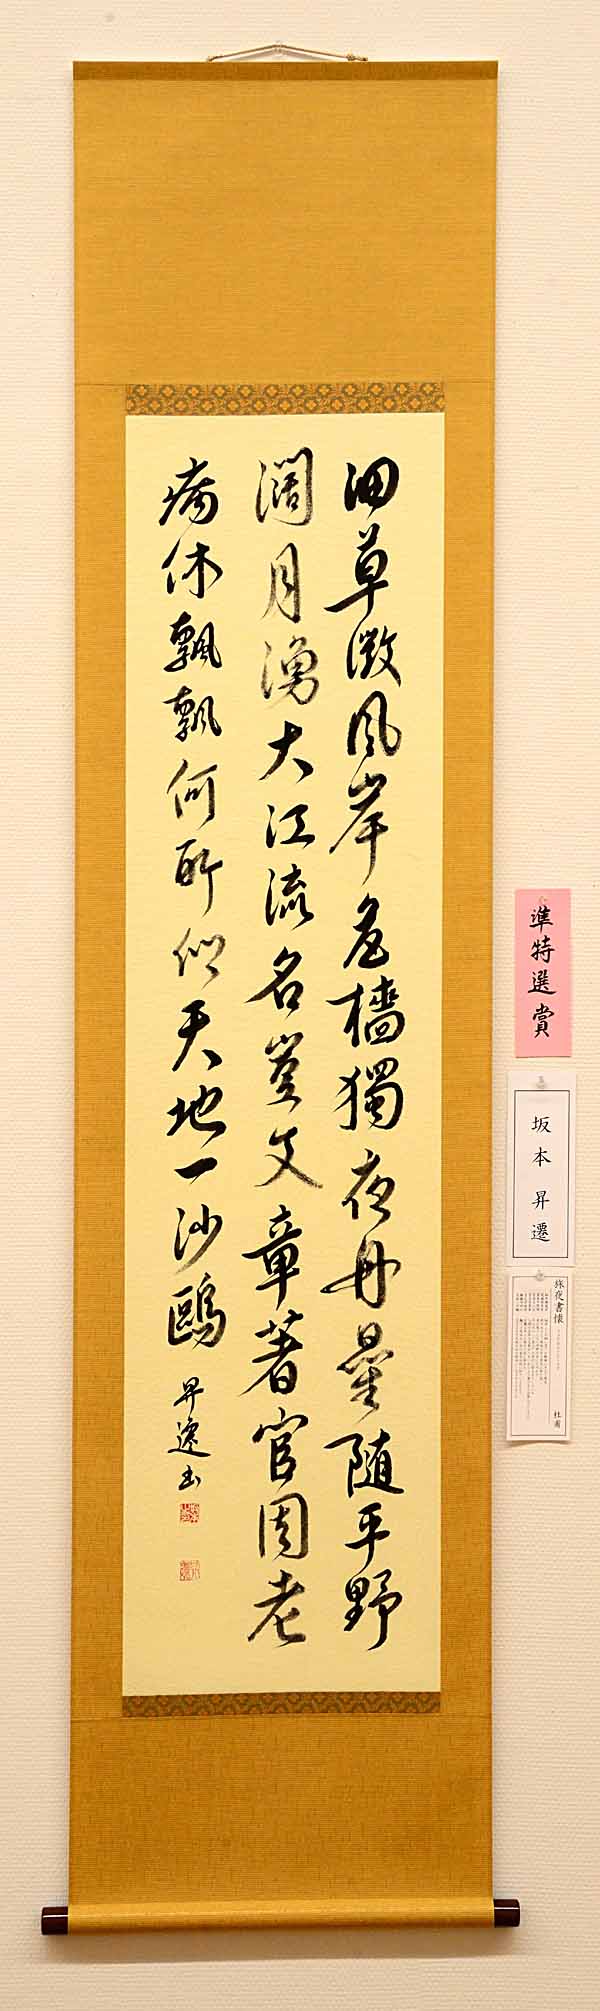 細草微風岸危檣獨夜舟星随平野
闊月湧大江流名豈文章著官因老
病休飄飄何所似天地一沙鷗 昇遷書
準特選賞
坂本 昇遷
旅夜書懐
杜甫